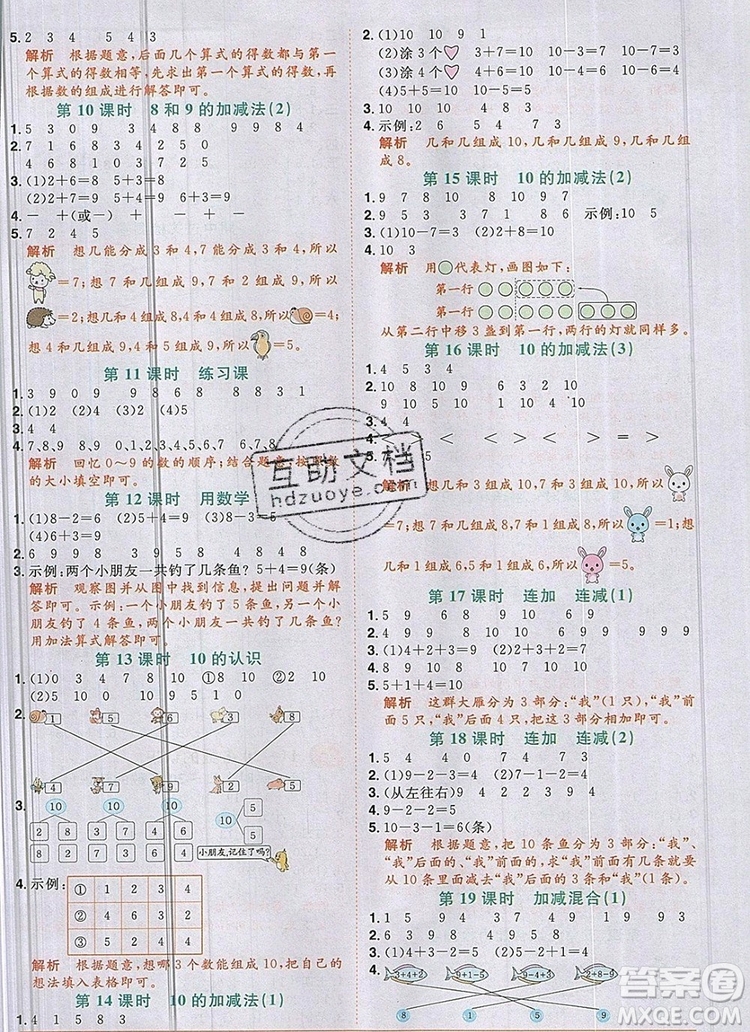 5. 2 3 4 5 4 3
解析 根据题意,后面几个算式的得数都与第一
个算式的得数相等,先求出第一个算式的得数,再
根据数的组成进行解答即可。
第 10 课时 8 和 9 的加减法(2)
1. 5 3 0 9 7 9 8 4
2. 8 7 1 6 8 8 3 8
7 4 3 2 5 0
3. (1)2+6=8 5+3=8
(2)5+4=9 6+3=9
4. － ＋(或－) － ＋ ＋
5. 7 2 4 5
解析 想几能分成 3 和 4,7 能分成 3 和 4,所以
=7;想 7 和几组成 9,7 和 2 组成 9,所以
=2;想 4 和几组成 8,4 和 4 组成 8,所以 =4;
想 4 和几组成 9,4 和 5 组成 9,所以 =5。
第 11 课时 练习课
1. 3 9 0 9 9 8 6 8 8 8 3 1
2. (1)2 (2)4 (3)4 2
3. 4 4
4. 7、8、9 1、0
解析 回忆 0～9 的数的顺序;结合题意,按照数
的大小填空即可。
第 12 课时 用数学
1. (1)8－2=6
(4)6+3=9
2. 6 9 9 8
3. 示例:两个小朋友一共钓了几条鱼? 5+4=9(条)
解析 观察图并从图中找到信息,提出问题并解
答即可。示例:一个小朋友钓了 5 条鱼,另一个
小朋友钓了 4 条鱼,两个小朋友一共钓了几条鱼?
用加法算式解答即可。
第 13 课时 10 的认识
1. (1)0 1 3 4 7 8 10 ①8 ②10
(2)5 10 10 9 8 7 6 5
2. 1 4 5 3 8
4 7 2 9 6
3. 10 10 10 10 5
2 8 4 6 3 7 1 9 5
8 2 6 4 7 3 9 1 小朋友,记住了吗? 5
4. 示例:
① 1 2 3 4
② 4 4 3 3
③ 5 4 4 3
解析 根据题意,想哪 3 个数能组成 10,用合适方
法想法填入表格即可。
第 14 课时 10 的加减法(1)
1. 4 1 5 8 3
2. (1)10 10 9 1
(2)涂 3 个 3+7=10 10－3=7
(3)涂 5 个 5+5=10 10－5=5
(4)5+5=10 10－5=5
3. 10 10 4 8 7
4. 示例:2 6 5 4 5 3
解析 几和几组成 10,几和几组成 9,几和几组
成 8。
第 15 课时 10 的加减法(2)
1. 9 7 8 10 8 10 9 10
2. 9 5 3 3 7 1 8 6 9 示例:10 5
3. (1)10－7=3 (2)2+8=10
4. 10 3
解析 用 代表灯,画图如下:
第一行
第二行
从第二行中移 3 盏到第一行,两行的灯就同样多。
第 16 课时 10 的加减法(3)
1. 4 5 3 4
2. 10 8 9 10 9
9 10 5 10 10 4 8
3. 4 4
4. ＜ ＜ ＞ ＜ ＜ ＞ ＜ = ＞
=7;想 7 和几组成 8,7 和 1 组成 8,所以
=5。
第 17 课时 连加 连减(1)
1. 5 9 6 8 9 10
3. 4
4. 7 7 1 9 6 9 7
5. 1+5+2=8
解析 这群大雁分为 3 部分:“我”(1 只),“我”
前面 5 只,“我”后面 2 只,用连加即可。
第 18 课时 连加 连减(2)
1. 5 4 0 5 7 4 7 3
2. 9－2－3=4
3. (从左往右)4 1 2 2 3 4
4. 9－2－2=5
5. 10－3－1=6(条)
解析 根据题意,把 10 条鱼分为 3 部分:“我”、
“我”后面的、“我”前面的,求“我”前面的,用
10 条减“我”后面的,再减“我”即可。
第 19 课时 加减混合(1)
1. 8 9 3
2. 9 6 2 7
3. 7 6 9
4. 3+4+2 9+1－5 9－4+3 2+8－9
8 1 5 9
互助文档
hdzuoye.com
答案圈
MXQE.COM